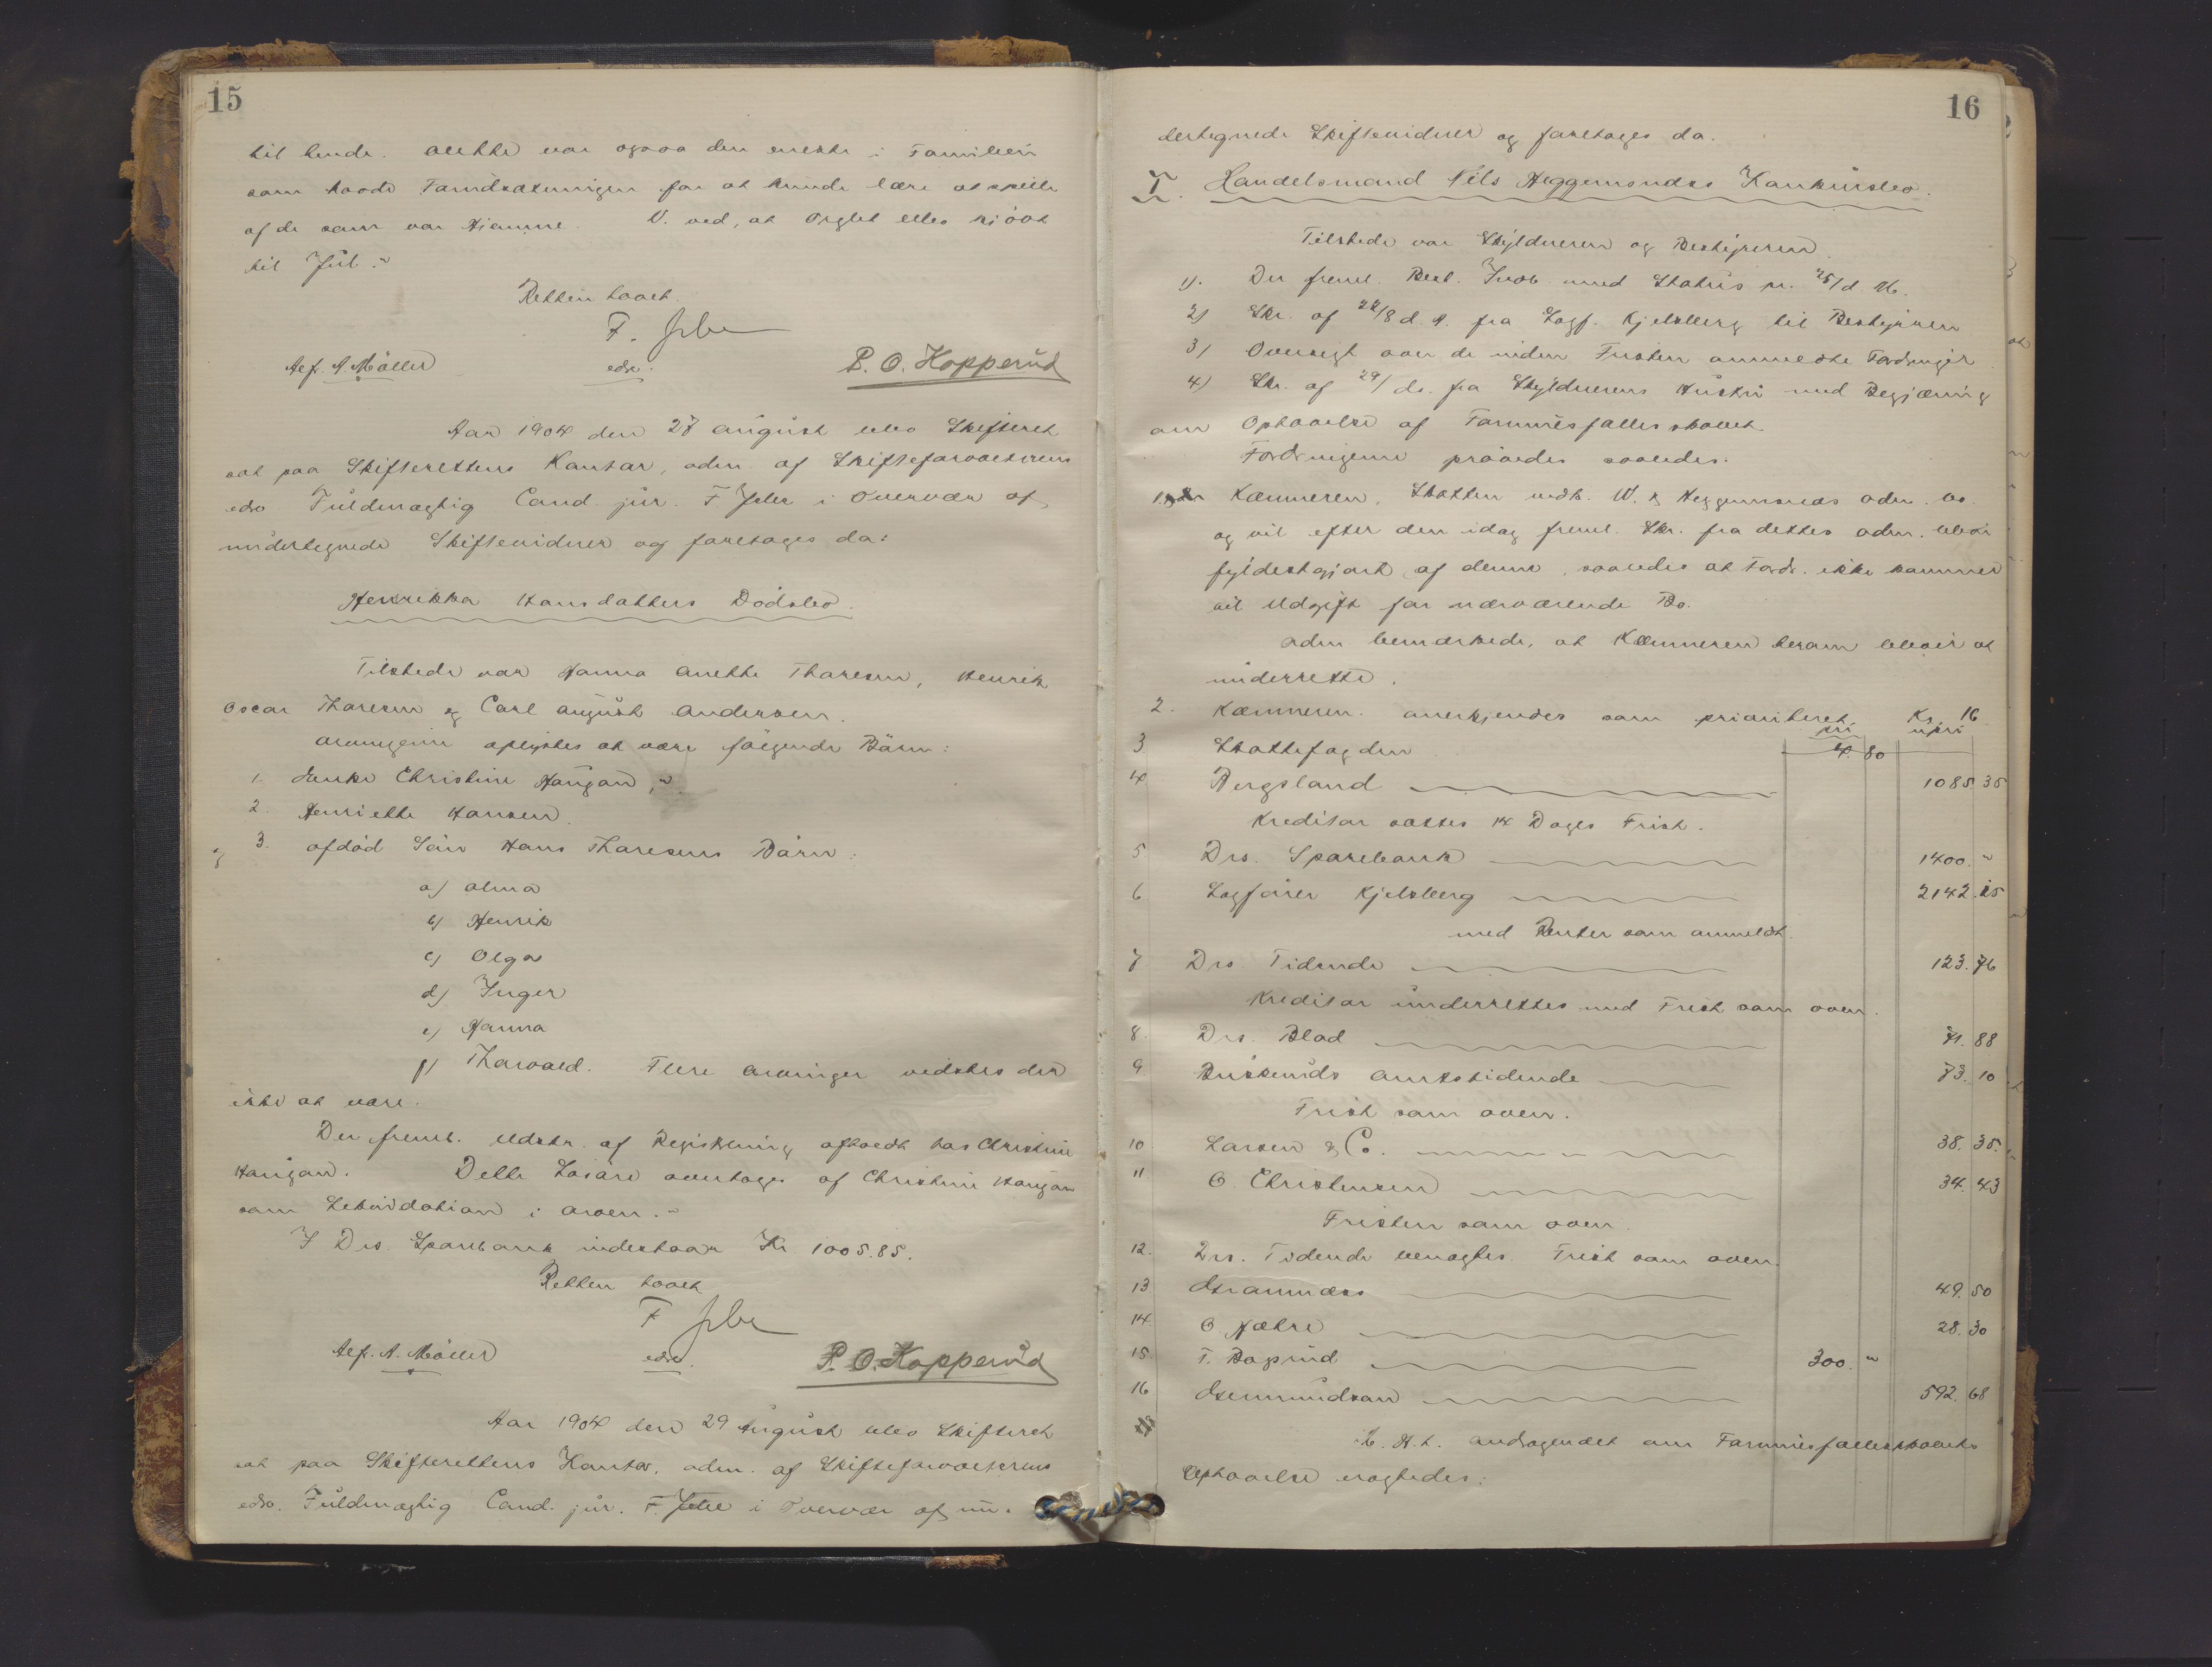 15
til hende. Anette var ogsaa den eneste i Familien
som havde Forudsætninger for at kunde lære at spille
af de som var Hjemme. V. ved, at Orglet blev kjöbt
til Jul."
Retten hævet.
F.
Alf. A. Möller
edsv.
P. O. Kopperud
Aar 1904 den 27 August blev Skifteret
sat paa Skifterettens Kontor, adm. af Skifteforvalterens
edsv. Fuldmægtig Cand. jur. F. i Overvær af
undertegnede Skiftevidner og foretoges da:
Henrikka Hansdatters Dödsbo.
Tilstede var Hanna Anette Thoresen, Henrik
Oscar Thoresen og Carl August Andersen.
Arvingerne oplystes at være fölgende Börn:
1. Christine Haugan,"
2. Henriette Hansen.
og 3. afdöd Sön Hans Thoresens Börn:
a) Alma
b) Henrik
c) Olga
d) Inger
e) Hanna
f) Thorvald. Flere Arvinger vidstes der
ikke at være.
Der freml. Udskr. af Registrering afholdt hos Christine
Haugan. Dette Lösöre overtages af Christine Haugan
som i Arven."
I Drs. Sparebank indestaar Kr. 1005.85.
Retten hævet
F.
Alf. A. Möller
edsv.
P. O. Kopperud
Aar 1904 den 29 August blev Skifteret
sat paa Skifterettens Kontor, adm. af Skifteforvalterens
edsv. Fuldmægtig Cand. jur. F. i Overvær af un-
16
dertegnede Skiftevidner og foretoges da.
I. Handelsmand Nils Heggemsnæs Konkursbo.
Tilstede var Skyldneren og Bestyreren.
1). Der freml. Best. Indb. med Status pr. 25/ d. M.
2) Skr. af 22/8 d. A. fra Sagf. Kjelsberg til Bestyreren
3) Oversigt over de inden Fristen anmeldte Fordringer
4) Skr. af 29/ ds. fra Skyldnerens Hustru med Begjæring
om Ophævelse af Formuesfællesskabet.
Fordringerne prövedes saaledes:
Kæmneren, Skatten vedk. W. Heggemsnæs adm. Bo.
og vil efter den idag freml. Skr. fra dettes adm. blive
fyldestgjort af denne, saaledes at Fordr. ikke kommer
til Udgift for nærværende Bo.
Adm. bemærkede, at Kæmneren herom bliver at
underrette.
2. Kæmneren. anerkjendes som prioriteret. Kr. 16.
pri upri
3 Skattefogden 4. 80
4 Bergsland 1085.35
Kreditor sættes 14 Dages Frist.
5 Drs. Sparebank 1400. "
6 Sagförer Kjelsberg 2142.25
med Renter som anmeldt.
7 Drs. Tidende 123.76
Kreditor underrettes med Frist som oven.
8. Drs. Blad 71.88
9 Buskeruds Amtstidende 73.10
Frist som oven.
10 Larsen & Co. 38.35.
11 O. Christensen 34.43
Fristen som oven.
12. Drs. Tidende benægtes. Frist som oven.
13 49.50
14. O. Hæhre 28.30
15. T. Bogerud 300. "
16 Asmundsen 592.68
Andragendet om Formuesfællesskabets
Ophævelse vragtedes: